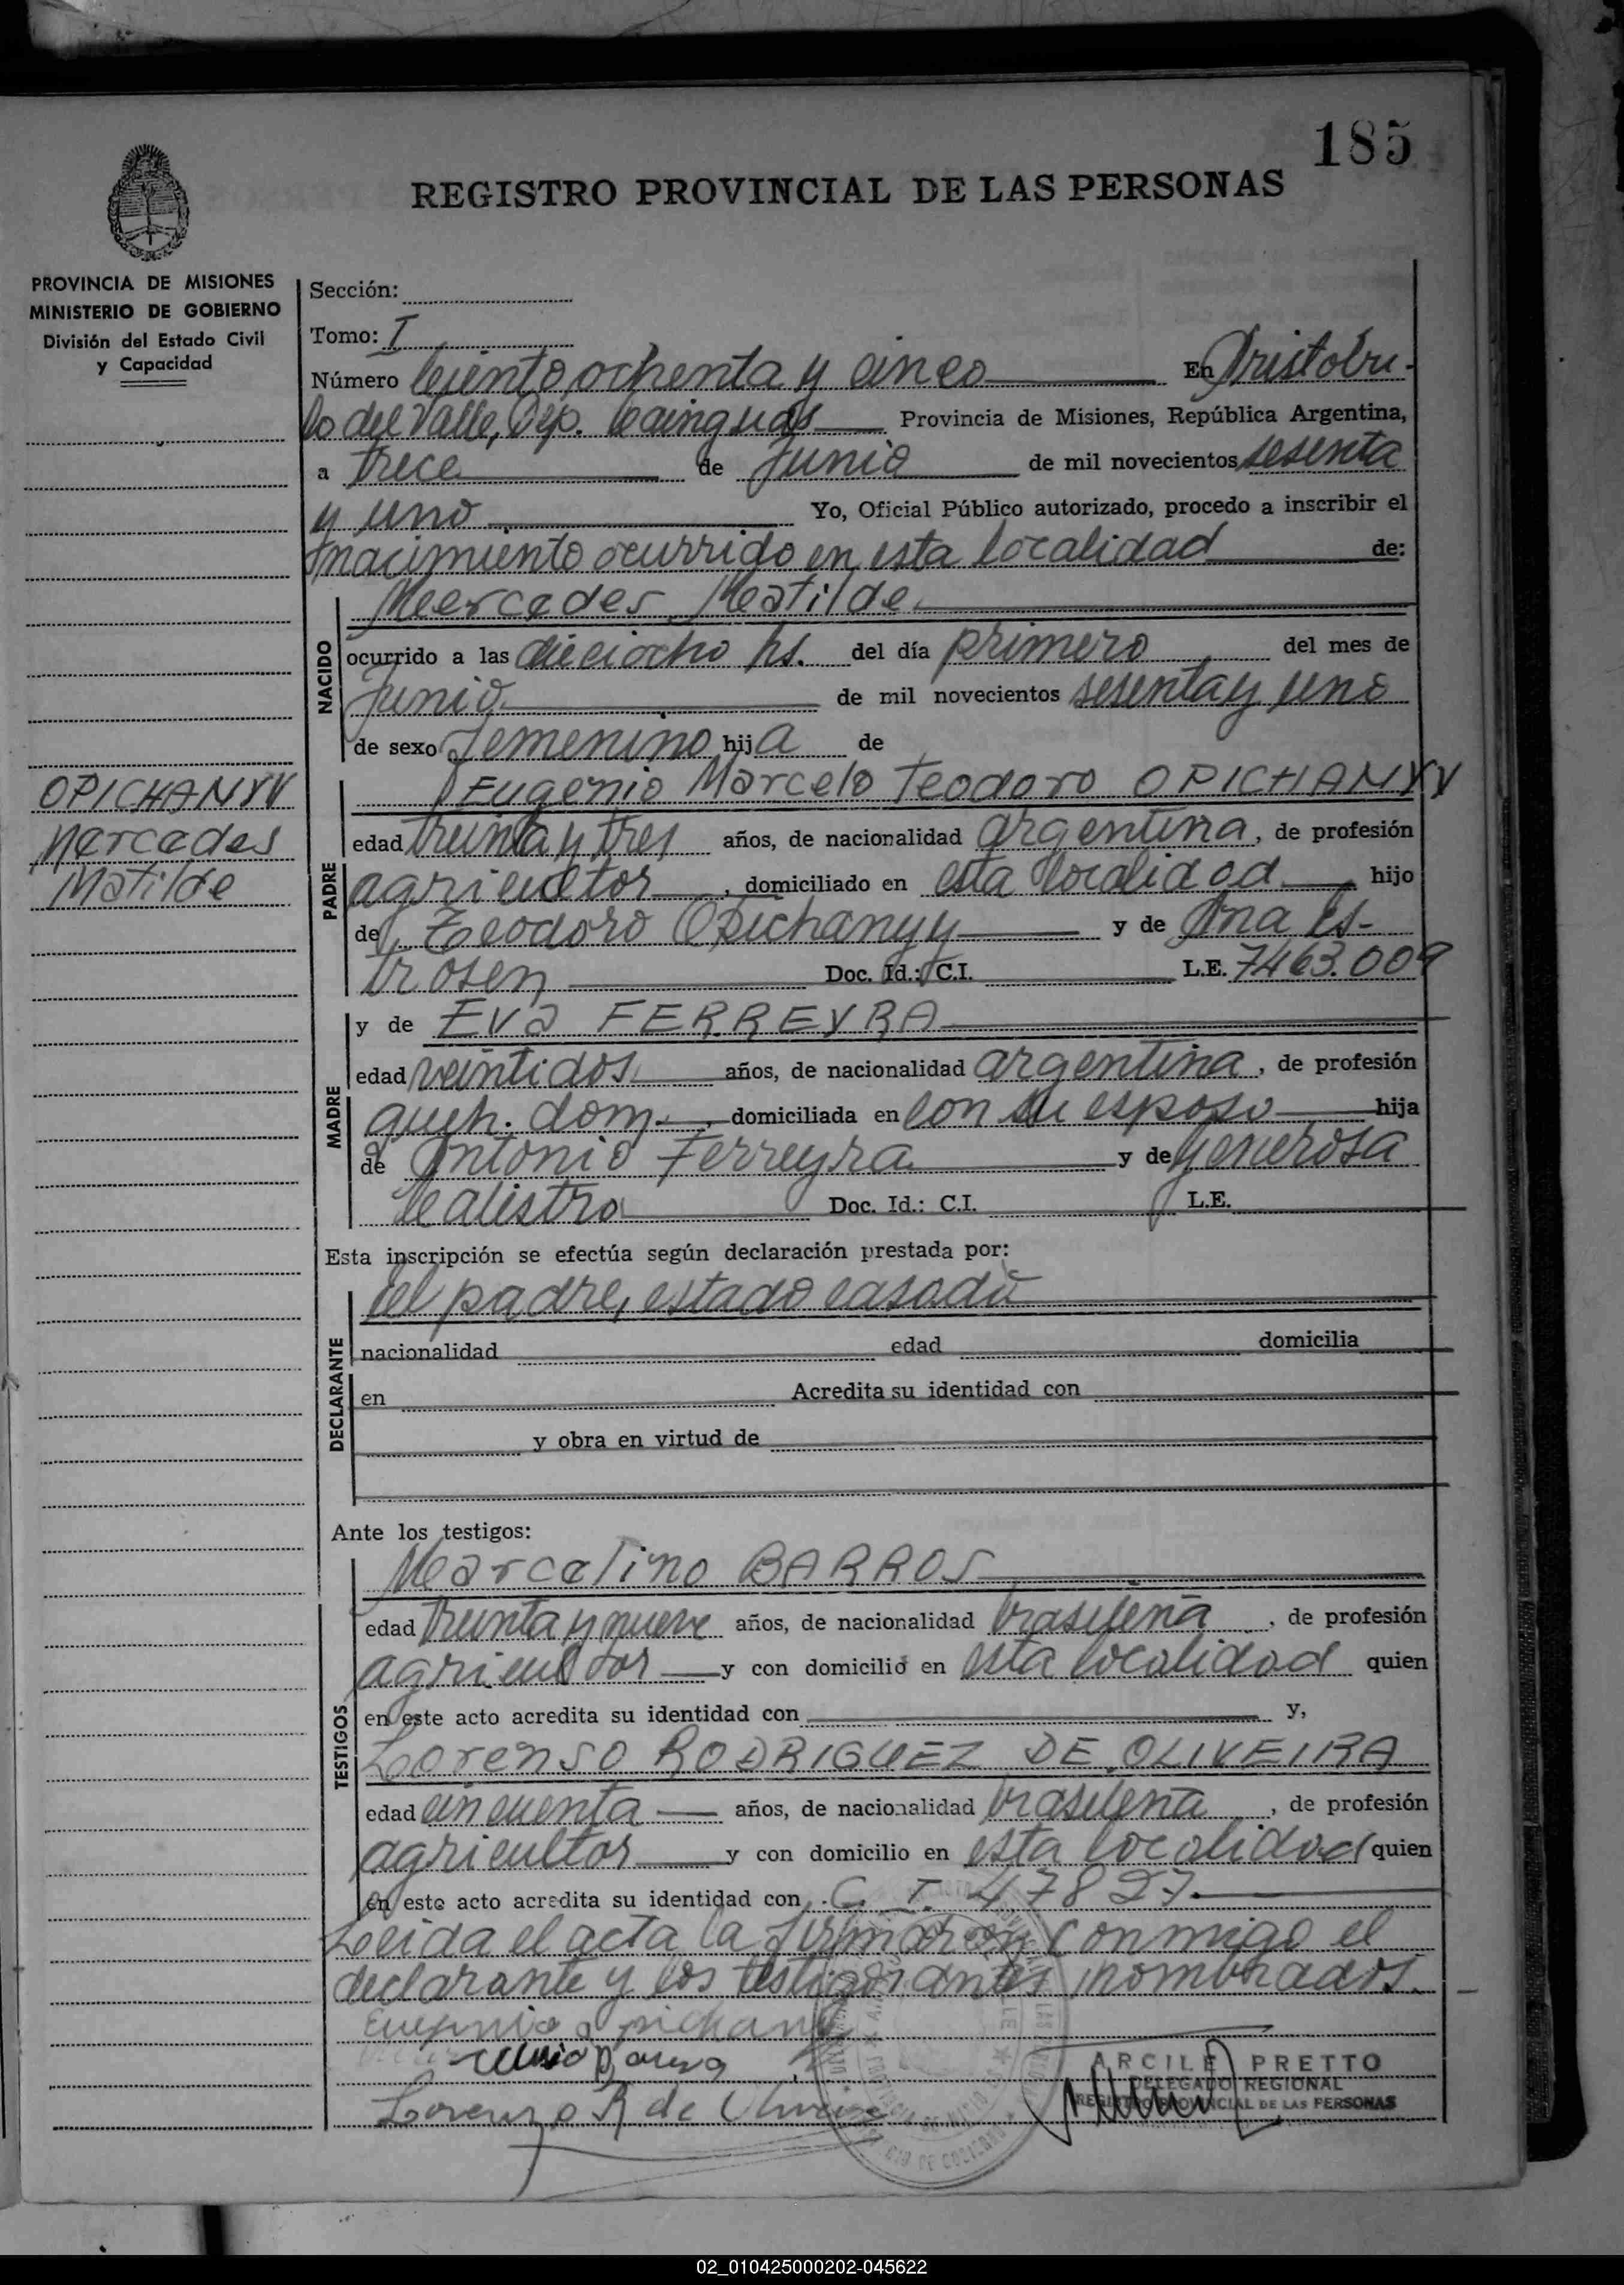 185
REGISTRO PROVINCIAL DE LAS PERSONAS
PROVINCIA DE MISIONES
MINISTERIO DE GOBIERNO
División del Estado Civil
y Capacidad
Sección:
Tomo: I
Número Ciento ochenta y cinco En Aristobu-
lo del Valle, Dep. Cainguas Provincia de Misiones, República Argentina,
a trece de Junio de mil novecientos sesenta
y uno Yo, Oficial Público autorizado, procedo a inscribir el
nacimiento ocurrido en esta localidad de:
NACIDO
Mercedes Matilde
ocurrido a las dieciocho hs. del día primero del mes de
Junio de mil novecientos sesenta y uno
de sexo femenino hija de
OPICHANYY
Mercedes
Matilde
PADRE
Eugenio Marcelo Teodoro OPICHANYY
edad treinta y tres años, de nacionalidad argentina, de profesión
agricultor, domiciliado en esta localidad hijo
de Teodoro Opichanyy y de Ana Es-
trosen Doc. Id.: C.I. L.E. 7463.009
MADRE
y de Eva FERREYRA
edad veintidos años, de nacionalidad argentina, de profesión
queh. dom., domiciliada en con su esposo hija
de Antonio Ferreyra y de Generosa
Calistro Doc. Id.: C.I. L.E.
Esta inscripción se efectúa según declaración prestada por:
DECLARANTE
del padre, estado casado
nacionalidad edad domicilia
en Acredita su identidad con
y obra en virtud de
Ante los testigos:
TESTIGOS
Marcelino BARROS
edad treinta y nueve años, de nacionalidad brasileña, de profesión
agricultor y con domicilio en esta localidad quien
en este acto acredita su identidad con y,
Lorenso RODRIGUEZ DE OLIVEIRA
edad cincuenta años, de nacionalidad brasileña, de profesión
agricultor y con domicilio en esta localidad quien
en este acto acredita su identidad con C. I. 47827
Leida el acta la firmaron conmigo el
declarante y los testigos antes nombrados.
Eugenio opichany
Lorenzo R de
ARCILE PRETTO
DELEGADO REGIONAL
REGISTRO PROVINCIAL DE LAS PERSONAS
02_010425000202-045622